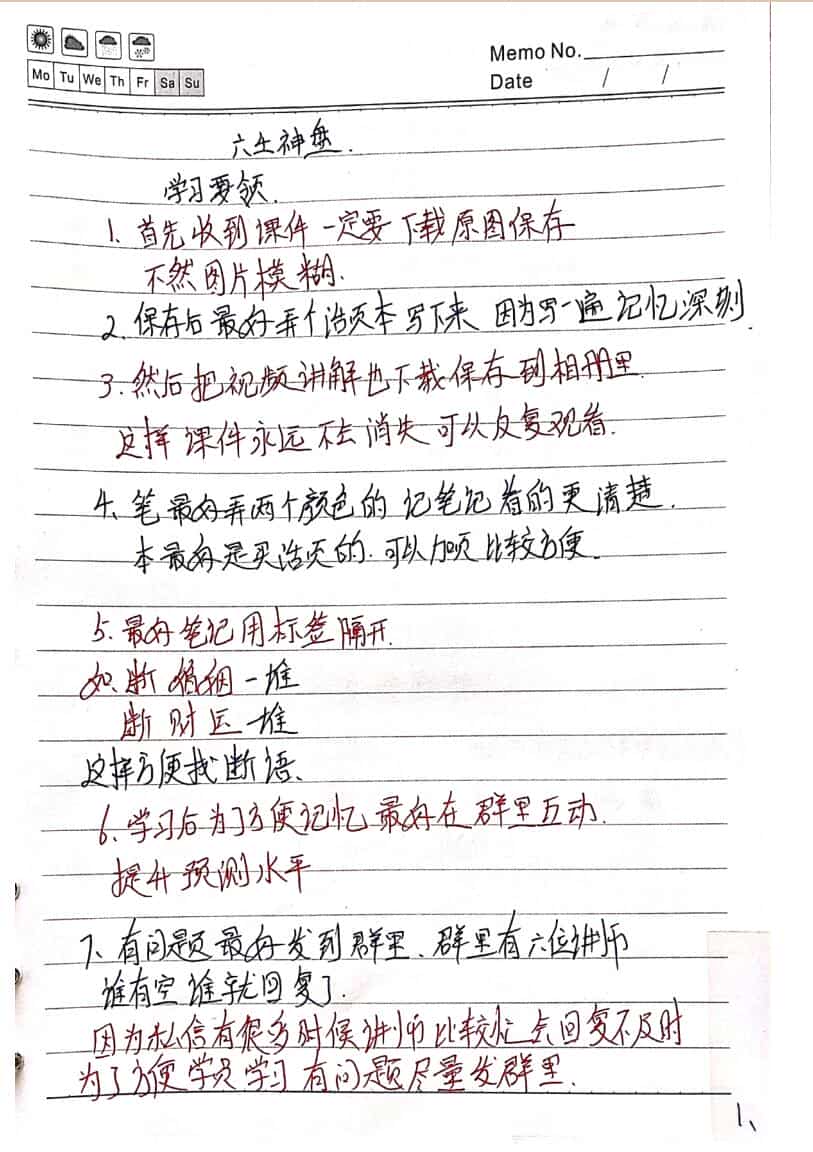 Memo No.
Mo Tu We Th Fr Sa Su
Date / /
六壬神盘.
学习要领.
1. 首先收到课件一定要下载原图保存
不然图片模糊.
2. 保存后最好弄个活页本写下来 因为写一遍记忆深刻.
3. 然后把视频讲解也下载保存到相册里.
这样课件永远不会消失可以反复观看.
4、笔最好弄两个颜色的 记笔记看的更清楚.
本最好是买活页的.可以加页比较方便.
5. 最好笔记用标签隔开.
如、断婚姻一堆
断财运一堆
这样方便找断语、
6. 学习后为了方便记忆最好在群里互动.
提升预测水平
7、有问题最好发到群里、群里有六位讲师
谁有空谁就回复了.
因为私信有很多时候讲师比较忙会回复不及时
为了方便学员学习有问题尽量发群里.
1、